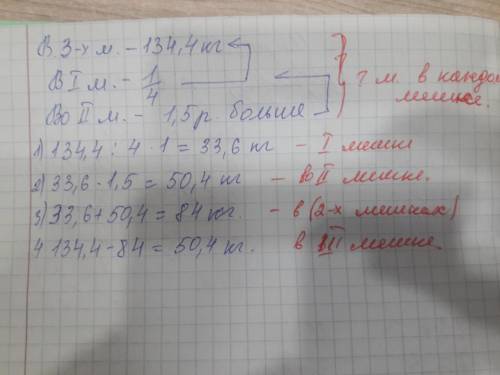 В 3-х м. – 134,4 кг
В I м. – 1/4
Во II м. – 1,5 р. больше
? м. в каждом мешке.
1) 134,4 : 4 · 1 = 33,6 кг – I мешки
2) 33,6 · 1,5 = 50,4 кг – во II мешке.
3) 33,6 + 50,4 = 84 кг. – в (2-х мешках)
4 134,4 – 84 = 50,4 кг. в III мешке.